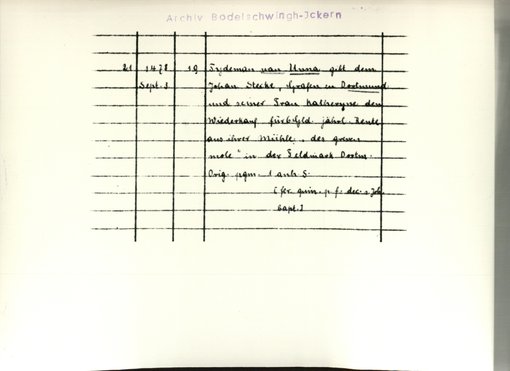 Archiv Bodelschwingh-Ickern
21 1478 19 Tydeman van Unna gibt dem
Sept. 3 Johan Stecke, Grafen in Dortmund
und seiner Frau Katheryne den
Wiederkauf für 6 fl. jährl. Rente
aus ihrer Mühle, des greven
mole" in der Feldmark Dortm.
Orig. pgm. 1 anh. S.
(fer. quin. p. f. dec. s. Joh.
bapt.)